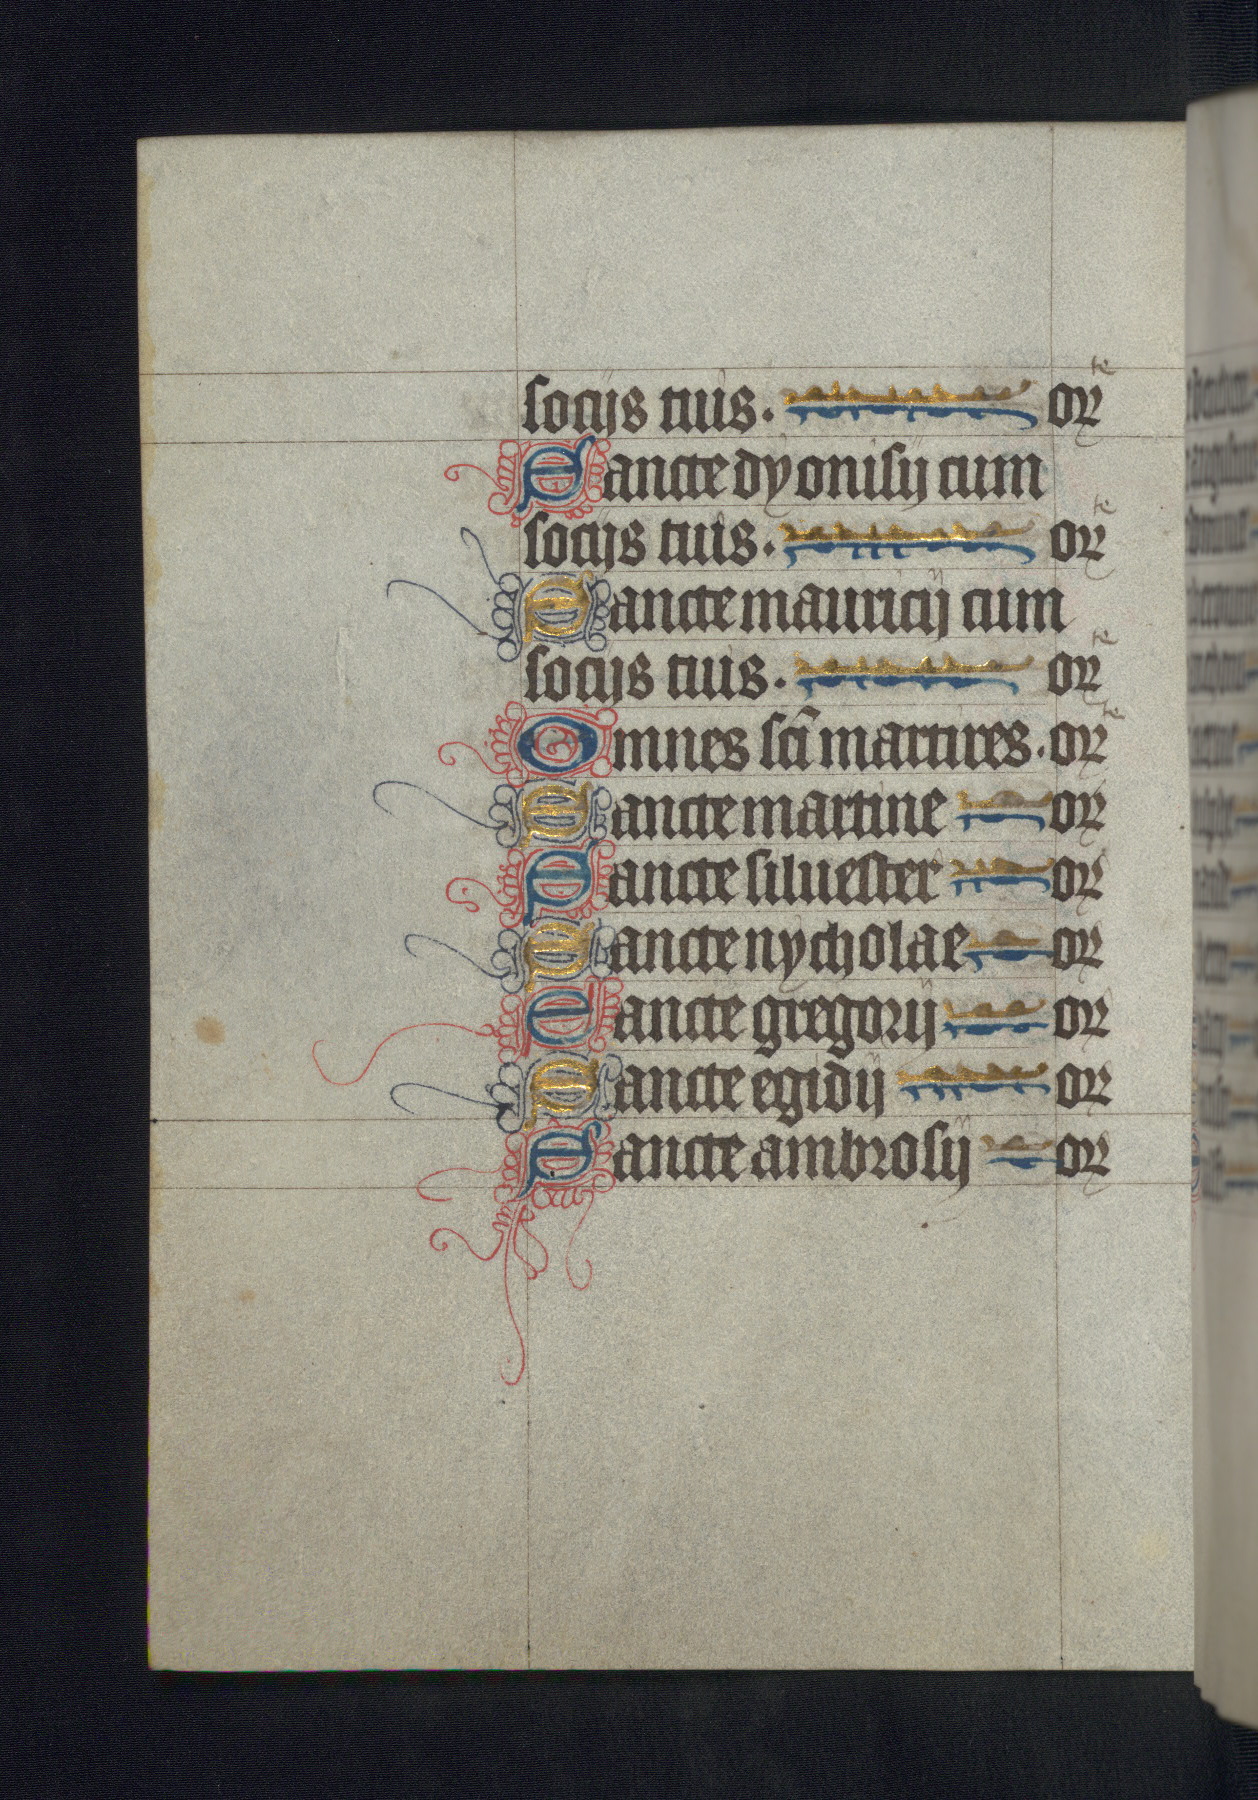 socijs tuis. orͭͤ
Sancte dyonisij cum
socijs tuis. orͭͤ
Sancte mauricij cum
socijs tuis. orͭͤ
Omnes sc̄i martires. orͭͤ
Sancte martine or
Sancte siluester or
Sancte nycholae or
Sancte gregorij or
Sancte egidij or
Sancte ambrosij or